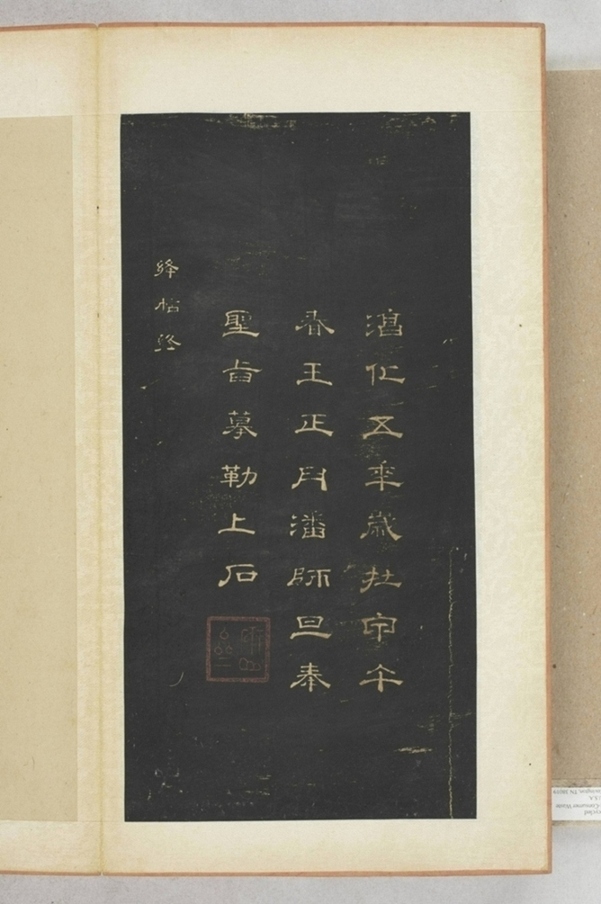 湻化五年歲在甲午
春王正月潘師旦奉
聖旨摹勒上石
絳帖終